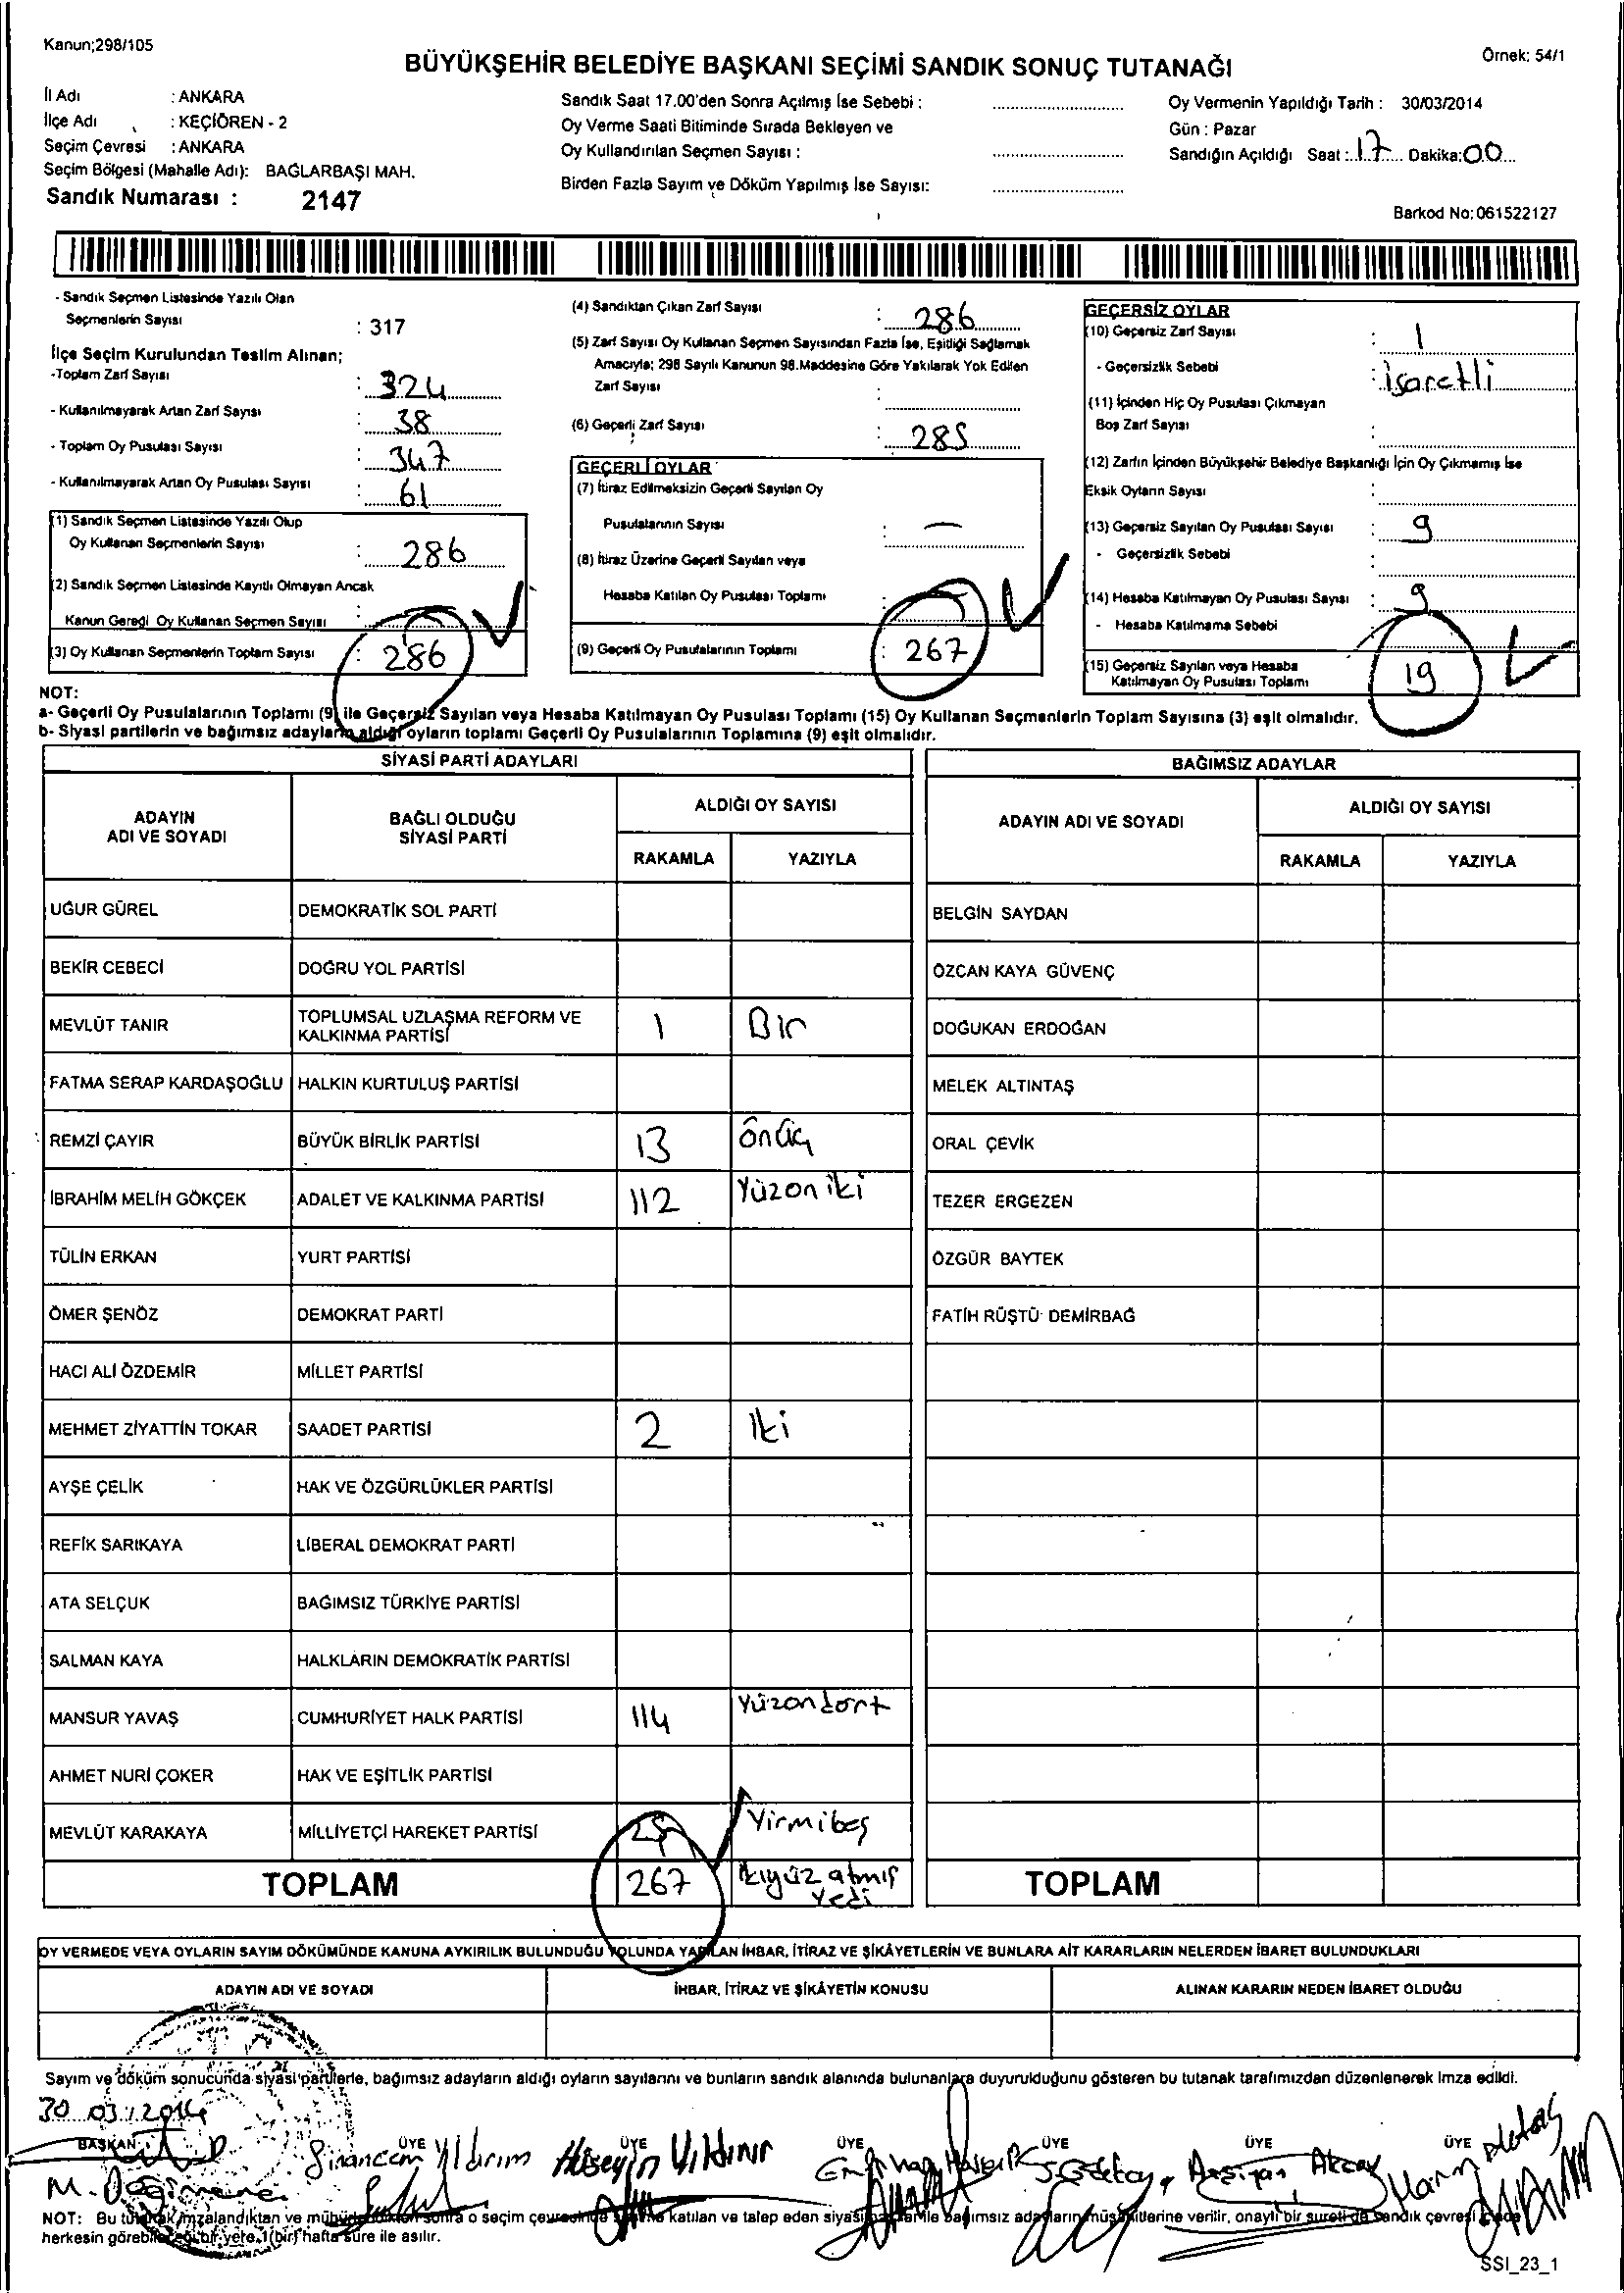 Kanun;298/105
Örnek: 54/1
BÜYÜKŞEHİR BELEDİYE BAŞKANI SEÇİMİ SANDIK SONUÇ TUTANAĞI
İl Adı : ANKARA
İlçe Adı : KEÇİÖREN - 2
Seçim Çevresi : ANKARA
Seçim Bölgesi (Mahalle Adı): BAĞLARBAŞI MAH.
Sandık Numarası : 2147
Sandık Saat 17.00'den Sonra Açılmış İse Sebebi :
Oy Verme Saati Bitiminde Sırada Bekleyen ve
Oy Kullandırılan Seçmen Sayısı :
Birden Fazla Sayım ve Döküm Yapılmış İse Sayısı:
Oy Vermenin Yapıldığı Tarih : 30/03/2014
Gün : Pazar
Sandığın Açıldığı Saat : 17 Dakika: 00
Barkod No: 061522127
- Sandık Seçmen Listesinde Yazılı Olan
Seçmenlerin Sayısı : 317
İlçe Seçim Kurulundan Teslim Alınan;
-Toplam Zarf Sayısı : 324
- Kullanılmayarak Artan Zarf Sayısı : 38
- Toplam Oy Pusulası Sayısı : 347
- Kullanılmayarak Artan Oy Pusulası Sayısı : 61
(1) Sandık Seçmen Listesinde Yazılı Olup
Oy Kullanan Seçmenlerin Sayısı : 286
(2) Sandık Seçmen Listesinde Kayıtlı Olmayan Ancak
Kanun Gereği Oy Kullanan Seçmen Sayısı :
(3) Oy Kullanan Seçmenlerin Toplam Sayısı : 286
(4) Sandıktan Çıkan Zarf Sayısı : 286
(5) Zarf Sayısı Oy Kullanan Seçmen Sayısından Fazla İse, Eşitliği Sağlamak
Amacıyla; 298 Sayılı Kanunun 98.Maddesine Göre Yakılarak Yok Edilen
Zarf Sayısı :
(6) Geçerli Zarf Sayısı : 285
GEÇERLİ OYLAR
(7) İtiraz Edilmeksizin Geçerli Sayılan Oy
Pusulalarının Sayısı : —
(8) İtiraz Üzerine Geçerli Sayılan veya
Hesaba Katılan Oy Pusulası Toplamı :
(9) Geçerli Oy Pusulalarının Toplamı : 267
GEÇERSİZ OYLAR
(10) Geçersiz Zarf Sayısı : 1
- Geçersizlik Sebebi : işaretli
(11) İçinden Hiç Oy Pusulası Çıkmayan
Boş Zarf Sayısı :
(12) Zarfın İçinden Büyükşehir Belediye Başkanlığı İçin Oy Çıkmamış İse
Eksik Oyların Sayısı :
(13) Geçersiz Sayılan Oy Pusulası Sayısı : 9
- Geçersizlik Sebebi :
(14) Hesaba Katılmayan Oy Pusulası Sayısı : 9
- Hesaba Katılmama Sebebi
(15) Geçersiz Sayılan veya Hesaba
Katılmayan Oy Pusulası Toplamı : 19
NOT:
a- Geçerli Oy Pusulalarının Toplamı (9) ile Geçersiz Sayılan veya Hesaba Katılmayan Oy Pusulası Toplamı (15) Oy Kullanan Seçmenlerin Toplam Sayısına (3) eşit olmalıdır.
b- Siyasi partilerin ve bağımsız adayların aldığı oyların toplamı Geçerli Oy Pusulalarının Toplamına (9) eşit olmalıdır.
SİYASİ PARTİ ADAYLARI
ADAYIN ADI VE SOYADI
BAĞLI OLDUĞU SİYASİ PARTİ
ALDIĞI OY SAYISI
RAKAMLA YAZIYLA
UĞUR GÜREL DEMOKRATİK SOL PARTİ
BEKİR CEBECİ DOĞRU YOL PARTİSİ
MEVLÜT TANIR TOPLUMSAL UZLAŞMA REFORM VE KALKINMA PARTİSİ 1 Bir
FATMA SERAP KARDAŞOĞLU HALKIN KURTULUŞ PARTİSİ
REMZİ ÇAYIR BÜYÜK BİRLİK PARTİSİ 13 önüç
İBRAHİM MELİH GÖKÇEK ADALET VE KALKINMA PARTİSİ 112 Yüzoniki
TÜLİN ERKAN YURT PARTİSİ
ÖMER ŞENÖZ DEMOKRAT PARTİ
HACI ALİ ÖZDEMİR MİLLET PARTİSİ
MEHMET ZİYATTİN TOKAR SAADET PARTİSİ 2 Iki
AYŞE ÇELİK HAK VE ÖZGÜRLÜKLER PARTİSİ
REFİK SARIKAYA LİBERAL DEMOKRAT PARTİ
ATA SELÇUK BAĞIMSIZ TÜRKİYE PARTİSİ
SALMAN KAYA HALKLARIN DEMOKRATİK PARTİSİ
MANSUR YAVAŞ CUMHURİYET HALK PARTİSİ 114 Yüzondört
AHMET NURİ ÇOKER HAK VE EŞİTLİK PARTİSİ
MEVLÜT KARAKAYA MİLLİYETÇİ HAREKET PARTİSİ 25 Yirmibeş
TOPLAM 267 Ikiyüz atmış yedi
BAĞIMSIZ ADAYLAR
ADAYIN ADI VE SOYADI
ALDIĞI OY SAYISI
RAKAMLA YAZIYLA
BELGİN SAYDAN
ÖZCAN KAYA GÜVENÇ
DOĞUKAN ERDOĞAN
MELEK ALTINTAŞ
ORAL ÇEVİK
TEZER ERGEZEN
ÖZGÜR BAYTEK
FATİH RÜŞTÜ DEMİRBAĞ
TOPLAM
OY VERMEDE VEYA OYLARIN SAYIM DÖKÜMÜNDE KANUNA AYKIRILIK BULUNDUĞU YOLUNDA YAPILAN İHBAR, İTİRAZ VE ŞİKÂYETLERİN VE BUNLARA AİT KARARLARIN NELERDEN İBARET BULUNDUKLARI
ADAYIN ADI VE SOYADI İHBAR, İTİRAZ VE ŞİKÂYETİN KONUSU ALINAN KARARIN NEDEN İBARET OLDUĞU
Sayım ve döküm sonucunda siyasi partilerle, bağımsız adayların aldığı oyların sayılarını ve bunların sandık alanında bulunanlara duyurulduğunu gösteren bu tutanak tarafımızdan düzenlenerek imza edildi.
30 03 2014
BAŞKAN ÜYE ÜYE ÜYE ÜYE ÜYE ÜYE
Sinancem Yıldırım Hüseyin Yıldırır
NOT: Bu tutanak imzalandıktan ve mühürlendikten sonra o seçim çevresinde seçime katılan ve talep eden siyasi partilerle bağımsız adayların müşahitlerine verilir, onaylı bir sureti de sandık çevresi içinde
herkesin görebileceği bir yere 1(bir) hafta süre ile asılır.
SSI_23_1